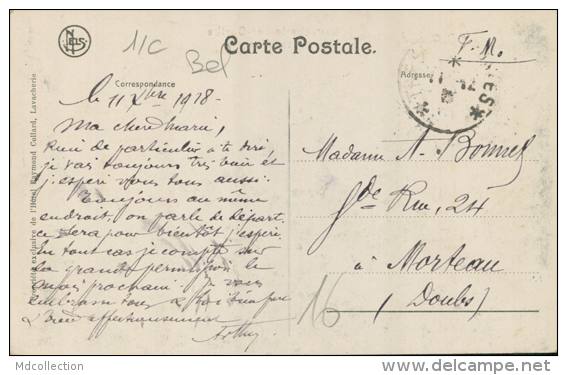 NELS
11C
Bel
Carte Postale.
F. M.
Correspondance
Adresse
le 11 Xbre 1918
Ma chère Marie,
Rien de particulier à te dire,
je vais toujours très bien et
j'espère vous tous aussi.
Toujours au même
endroit, on parle de départ.
ce sera pour bientôt j'espère
En tout cas je compte sur
la grande permission le
mois prochain. Je vous
embrasse tous
bien affectueusement
Madame A. Bonnet
Gde Rue, 24
à Morteau
(Doubs)
16
Propriété exclusive de l'Hôtel Raymond Collard, Lavacherie
Mdcollection
www.delcampe.net